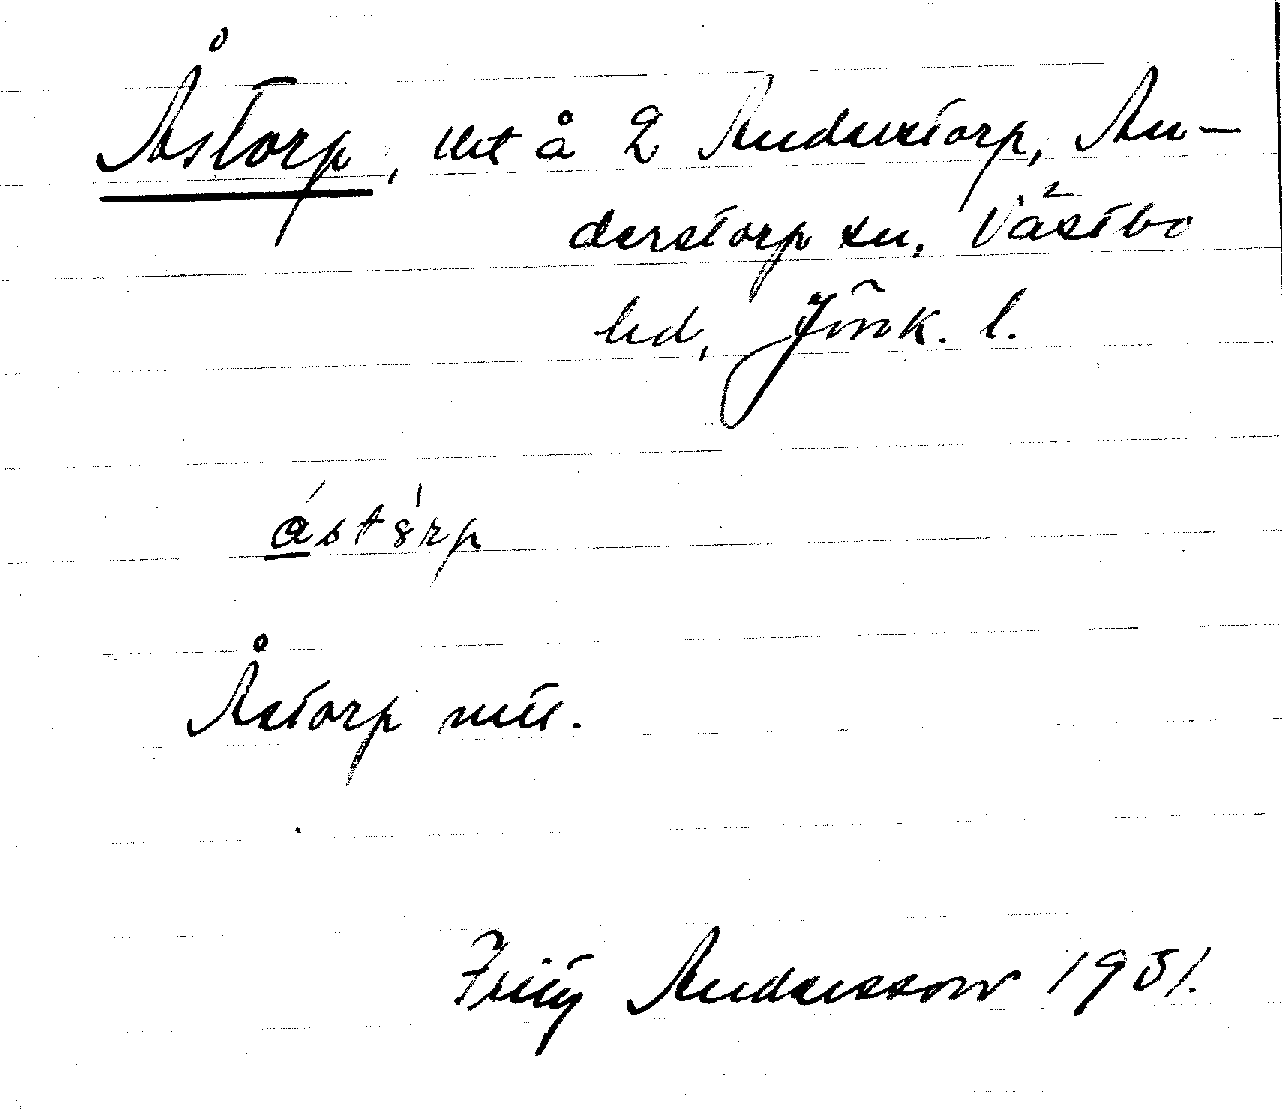 Åstorp, lht å 2 Anderstorp, An-
derstorp sn, Västbo
hd, Jönk. l.
ástórp
Åstorp mtl.
Fritz Andersson 1931.